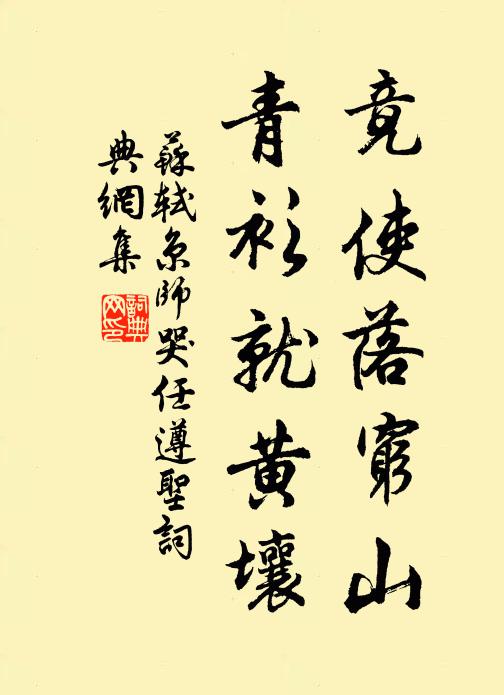 竟使落窮山
青衫就黃壤
蘇軾京師哭任遵聖詞
典網集
詞典網印